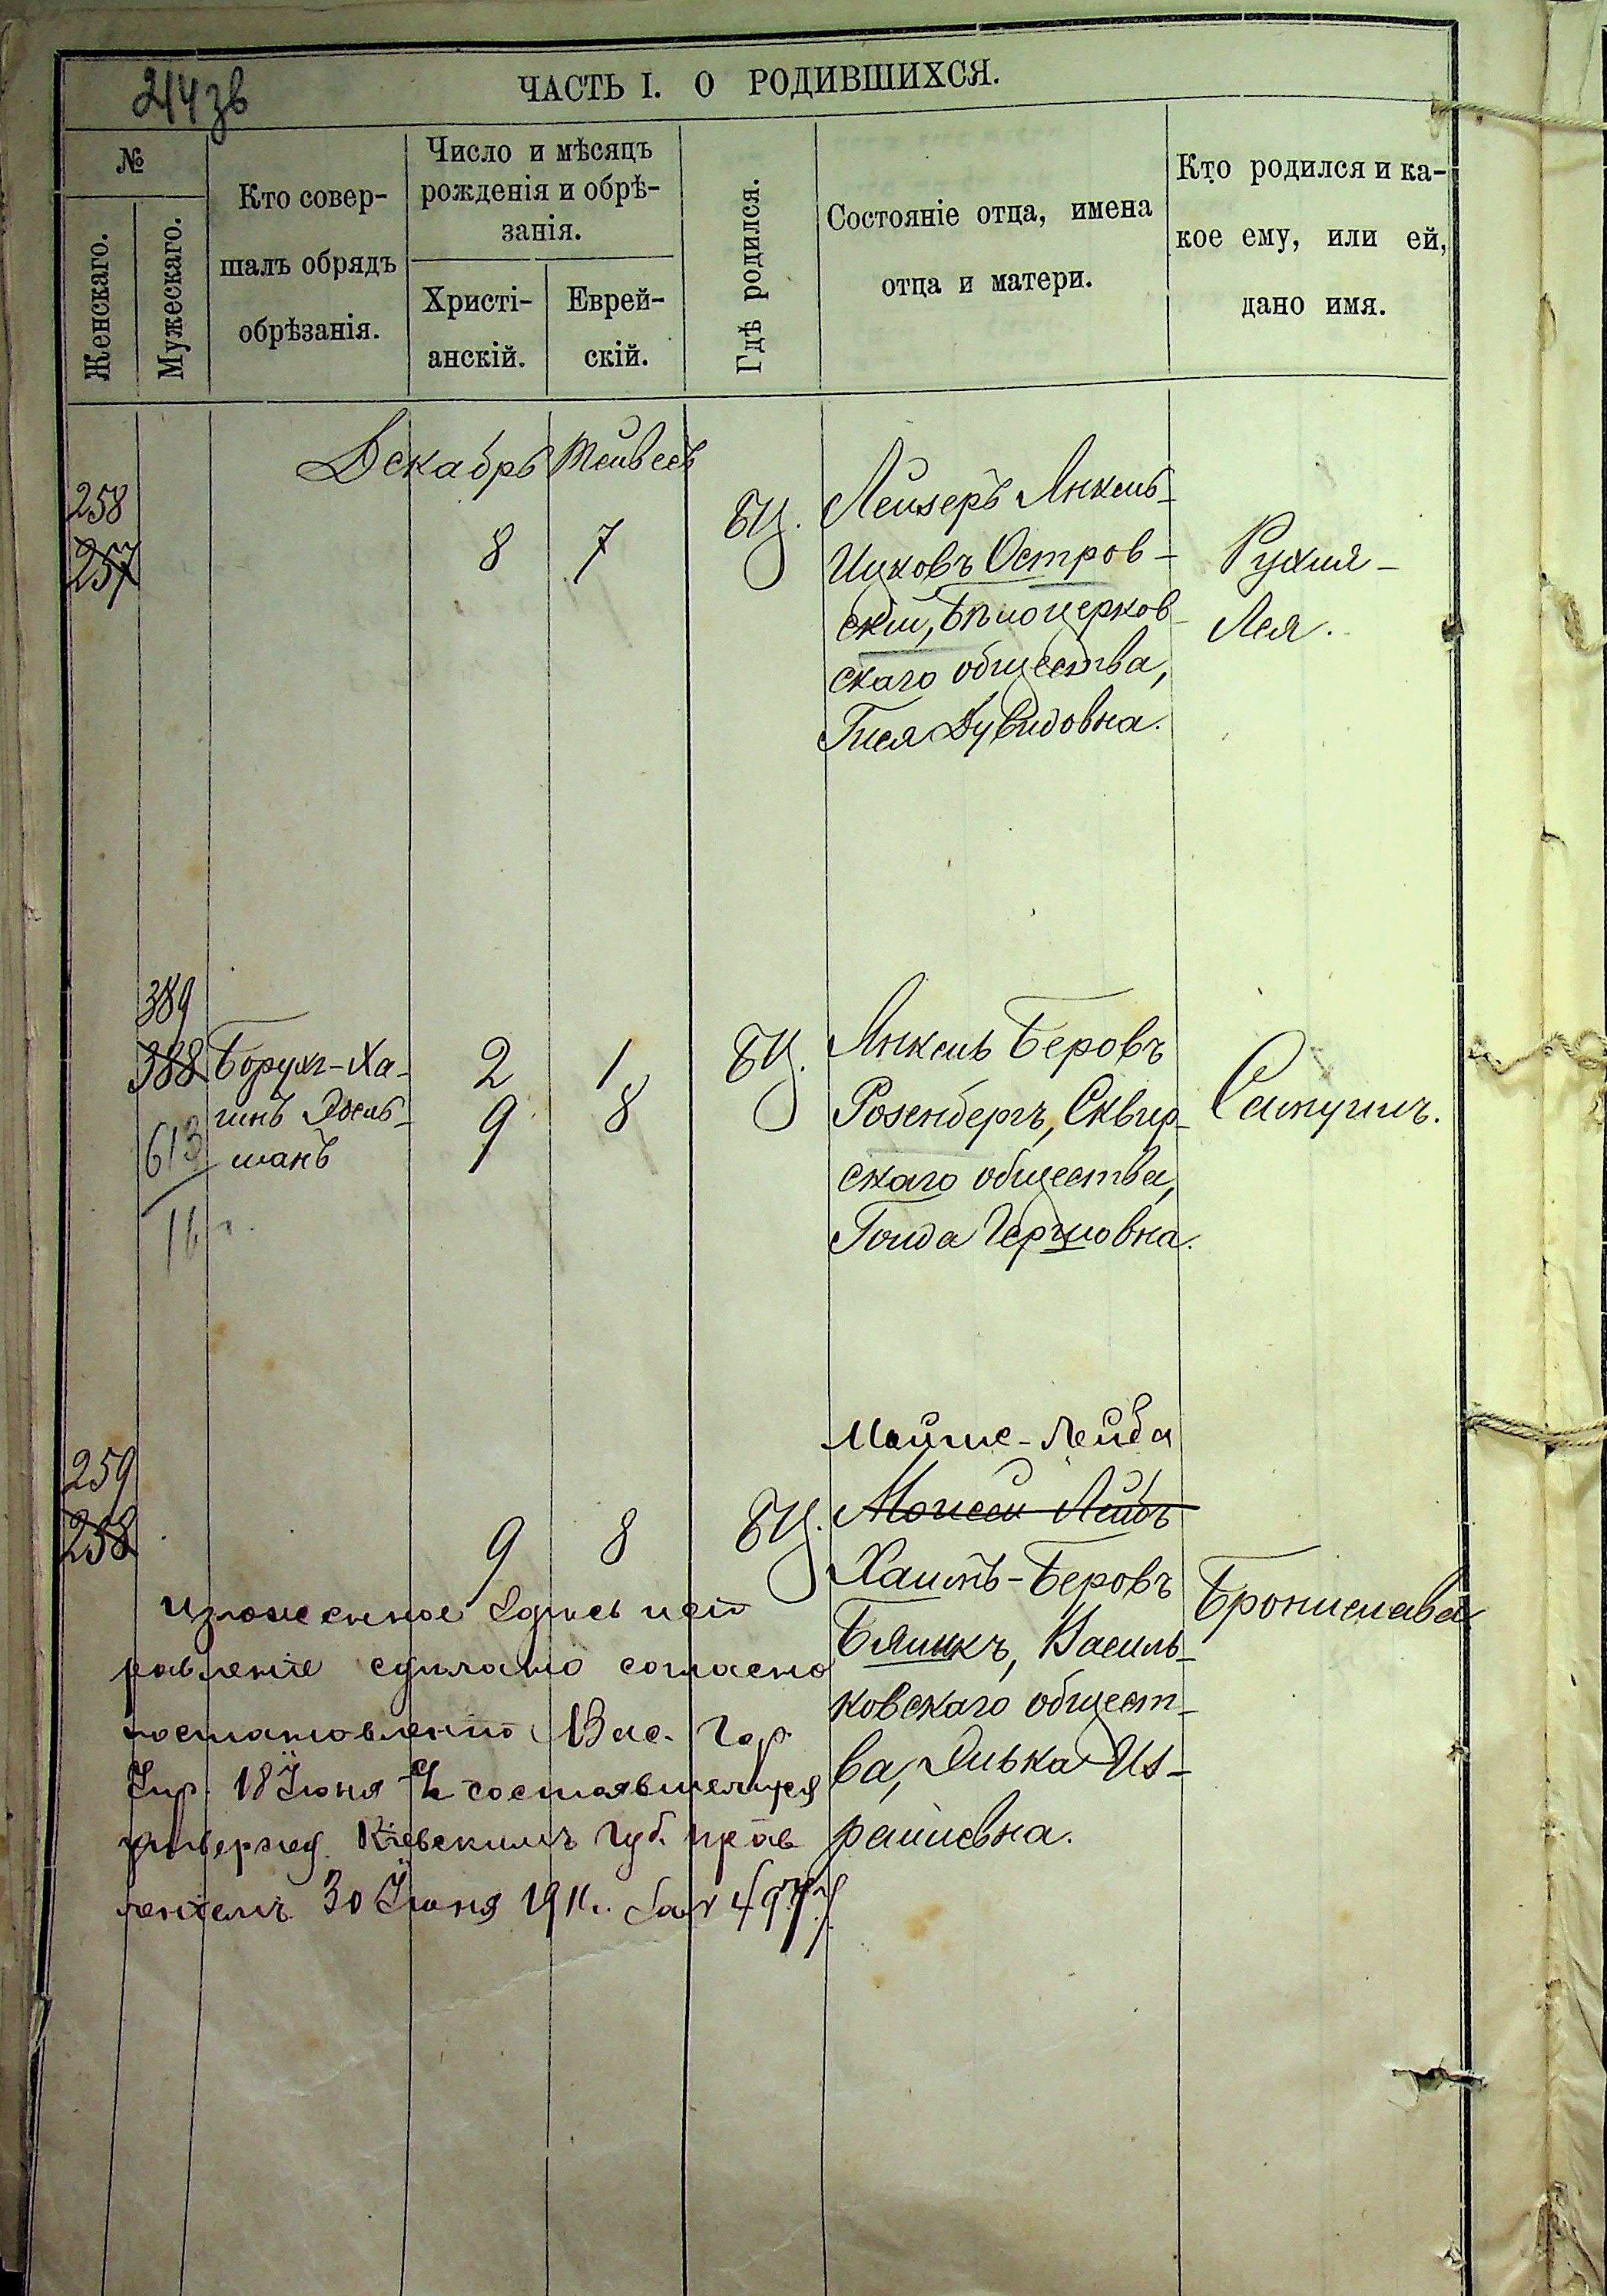 214зв
ЧАСТЬ I. О РОДИВШИХСЯ.
№
Женскаго.
Мужескаго.
Кто совер-
шалъ обрядъ
обрѣзанія.
Число и мѣсяцъ
рожденія и обрѣ-
занія.
Христі-
анскій.
Еврей-
скій.
Гдѣ родился.
Состояніе отца, имена
отца и матери.
Кто родился и ка-
кое ему, или ей,
дано имя.
Декабрь Тейвесъ
258
257
8 7
БЦ.
Лейзеръ Янкель-
Ицковъ Остров-
скій, Бѣлоцерков-
скаго общества,
Гися Дувидовна.
Рухля-
Лея.
389
388
613
Борухъ-Ха-
имъ Эдель-
манъ
2 1
9 8
БЦ.
Янкель Беровъ
Розенбергъ, Сквир-
скаго общества,
Голда Гершовна.
Самуилъ.
259
258
9 8
БЦ.
Мойше-Лейба
Моисей Лейбъ
Хаимъ-Беровъ
Бяликъ, Василь-
ковскаго общест-
ва, Элька Из-
раилевна.
Бронислава
Изложенное здѣсь исп
равленіе сдѣлано согласно
постановленію Вас. Гор.
Упр. 18 Іюня состоявшемуся
утвержд. Кіевскимъ Губ. Прав
леніемъ 30 Іюня 1911г. за №